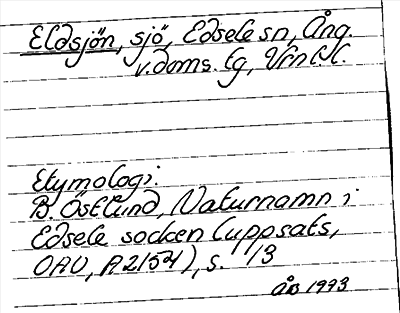 Eldsjön, sjö, Edsele sn, Ång.
v.doms. lg, Vrn lK.
Etymologi:
B. Östlund, Naturnamn i
Edsele socken (uppsats,
OAU, A2154), s. 13
ÅB 1993